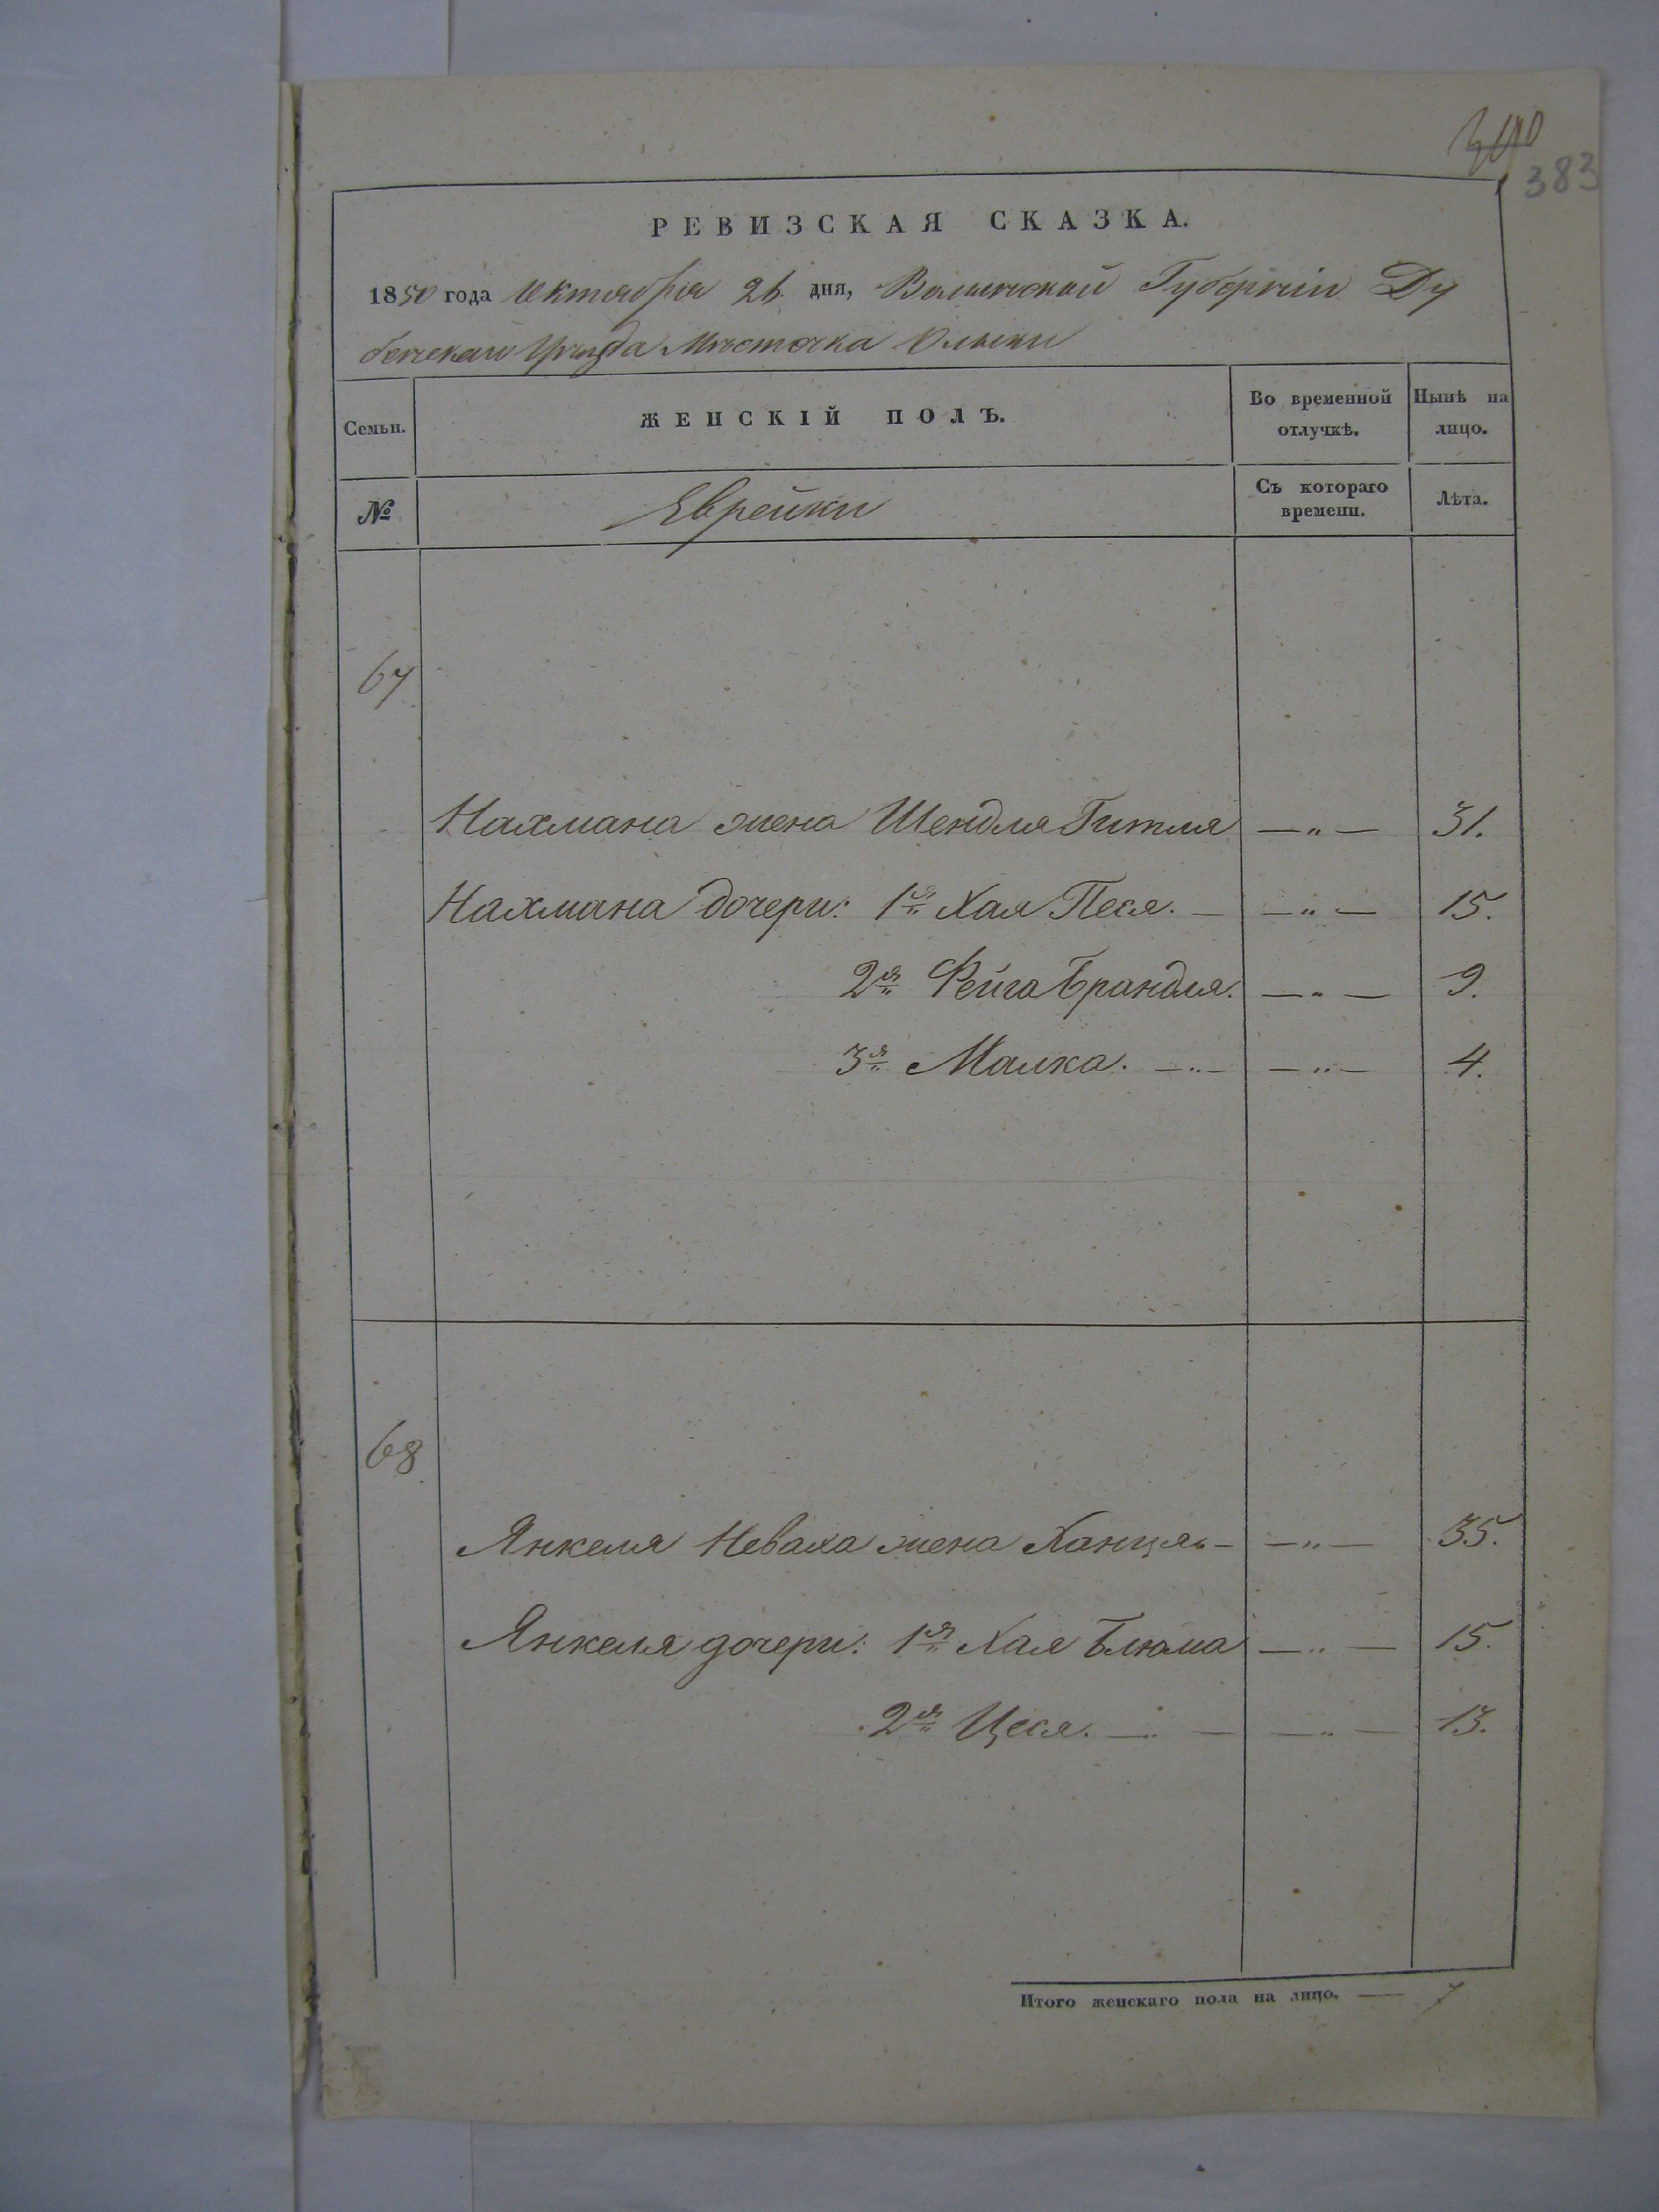 383
РЕВИЗСКАЯ СКАЗКА.
1850 года Октября 26 дня, Волынской Губерніи Ду
бенскаго Уѣзда Мѣстечка Олыки
Семьи.
ЖЕНСКІЙ ПОЛЪ.
Во временной отлучкѣ.
Нынѣ на лицо.
№
Еврейки
Съ котораго времени.
Лѣта.
67
Нахмана жена Шендля Гитля — „ — 31.
Нахмана дочери: 1я Хая Песя. — — „ — 15.
2я Фейга Брандля. — „ — 9.
3я Малка. — „ — — „ — 4.
68
Янкеля Неваха жена Ханця — — „ — 35.
Янкеля дочери: 1я Хая Блюма — „ — 15.
2я Цеся. — „ — — „ — 13.
Итого женскаго пола на лицо. — 7